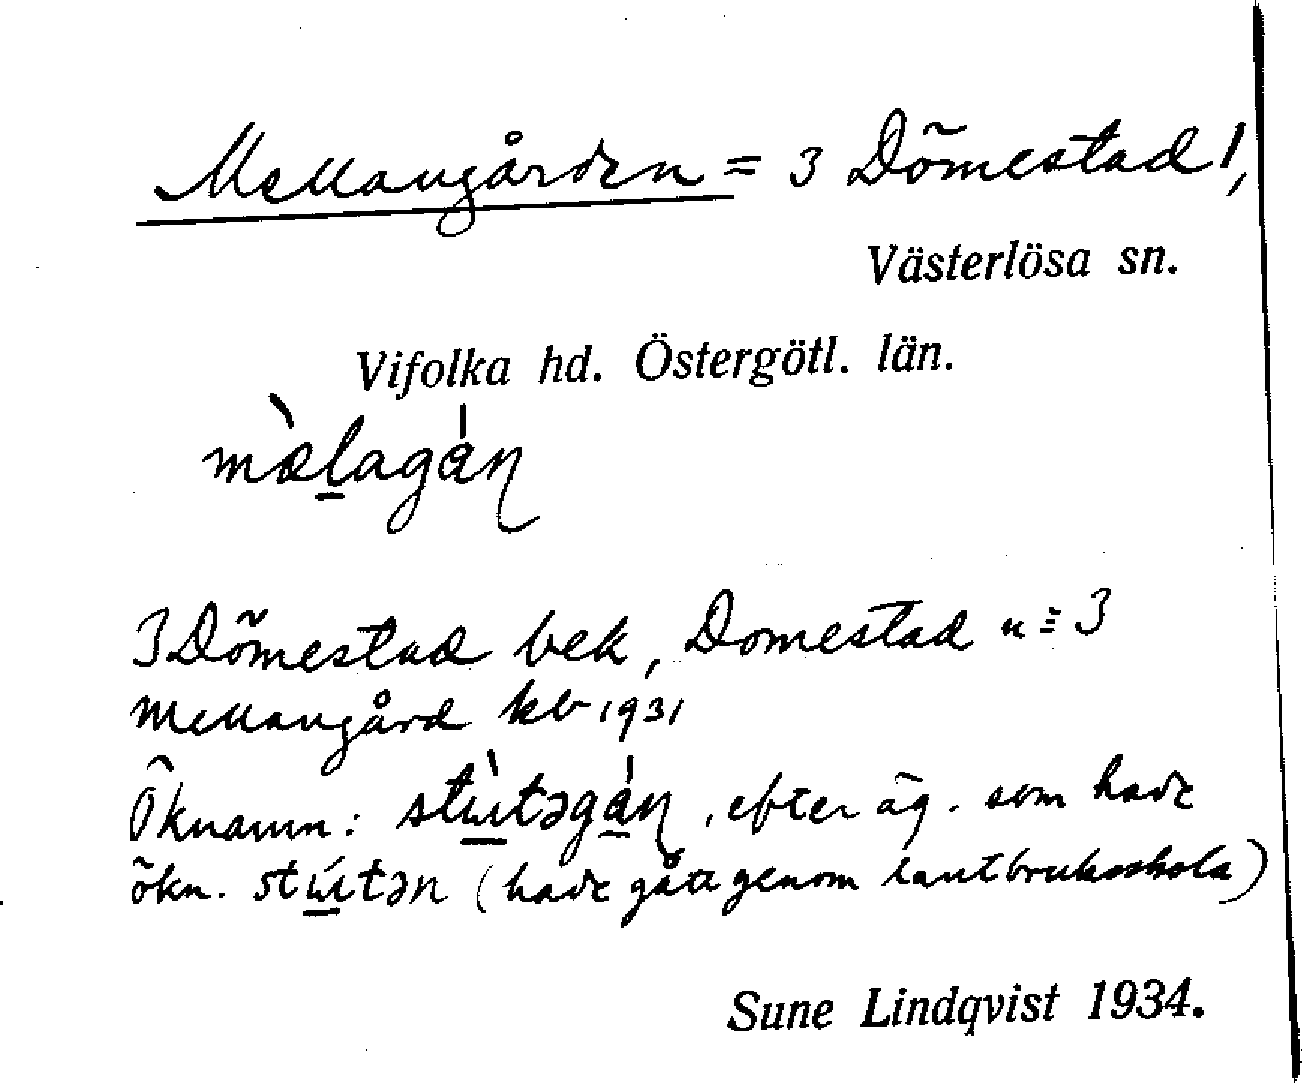 Mellangården = 3 Dömestad 1,
Västerlösa sn.
Vifolka hd. Östergötl. län.
mæ̀lagán
3 Dömestad bek, Domestad n:≡ 3
Mellangård kb 1931
Öknamn: stùtəgán, efter äg. som hade
ökn. stútən (hade gått genom lantbruksskola)
Sune Lindqvist 1934.